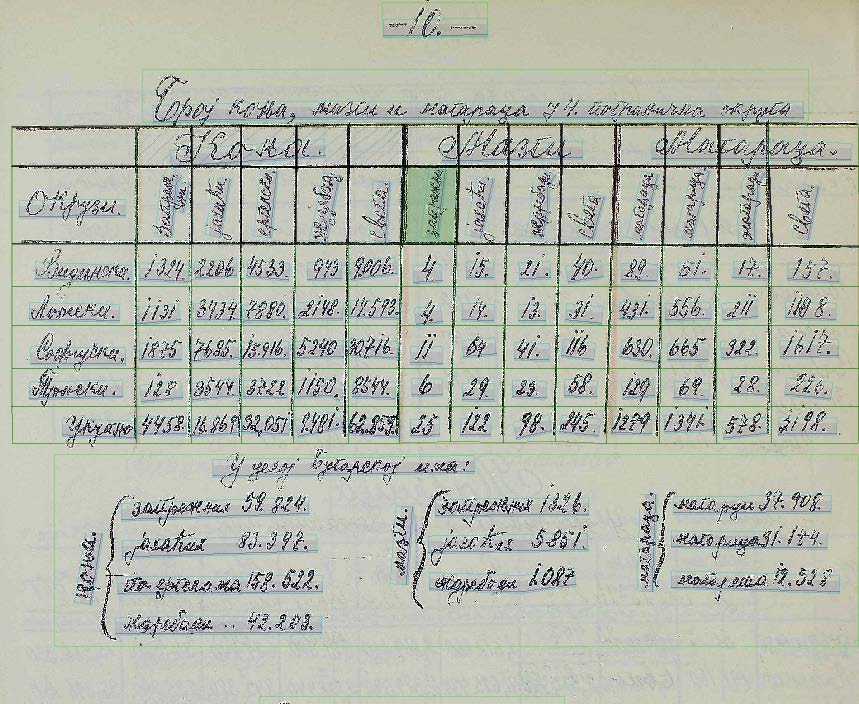 10.
Број коња, мазги и магараца у 4. погранична округа
Коња. Мазги Магараца.
Окрузи. јахаћи свега јахаћи свега магараца свега
Видинска. 1324 2206. 4533. 943 9006. 4 15. 21. 40. 89. 51. 17. 157.
Ломска. 1131 3434 7880. 2148. 14.593. 4 14. 13. 31. 431. 556. 211 1198.
Софијска. 1875 7685. 15.916. 5240 30.716. 11 64 41. 116 630. 665 322. 1617.
Трнска. 128 3544. 3722 1150. 8544. 6 29. 23. 58. 129 69. 28. 226.
Укупно 4458. 16.869. 32.051 9481. 62.859. 25 122 98. 245. 1279 1341. 578. 3198.
У целој Бугарској има:
коња.
запрежних 59.824.
јахаћих 83.397.
по брдима 158.522.
ждребади .. 43.203.
мазги.
запрежних 1326.
јахаћих 5851.
ждребади 1087
магараца.
магараца 37.908.
магарица 31.174.
магаради 12.523